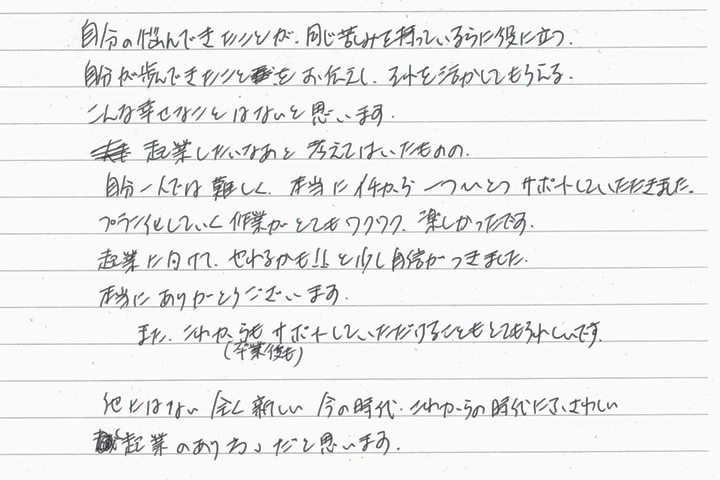 自分の悩んできたことが、同じ苦みを持っている方に役に立つ、
自分が歩んできたことをお伝えし、それを活かしてもらえる。
こんな幸せなことはないと思います。
起業したいなあと考えてはいたものの、
自分一人では難しく、本当にイチから一つひとつサポートしていただきました。
プラン化していく作業がとてもワクワク、楽しかったです。
起業に向けて、やれるかも!!と少し自信がつきました。
本当にありがとうございます。
また、これからもサポートしていただけることもとてもうれしいです。
(卒業後も)
他にはない全く新しい今の時代、これからの時代にふさわしい
起業のあり方、だと思います。